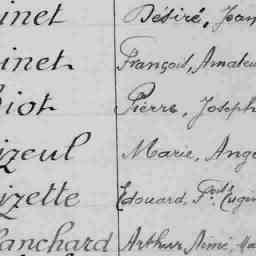 inet Désiré, Jean
inet François, Amateu
iot Pierre, Joseph
izeul Marie, Ang
izette Edouard, Eugè
lanchard Arthur, Aimé, Ma